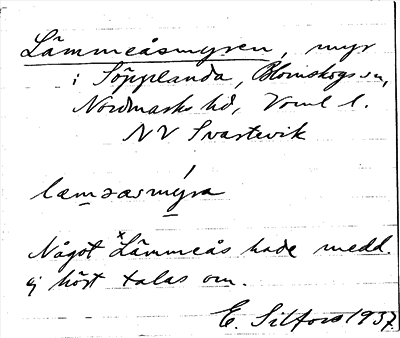 Lämmeåsmyren, myr
i Söpplanda, Blomskogs sn,
Nordmarks hd, Vrml l.
NV Svartevik
læmǝasmýra
Något *Lämmeås hade medd.
ej hört talas om.
E. Silfors 1937